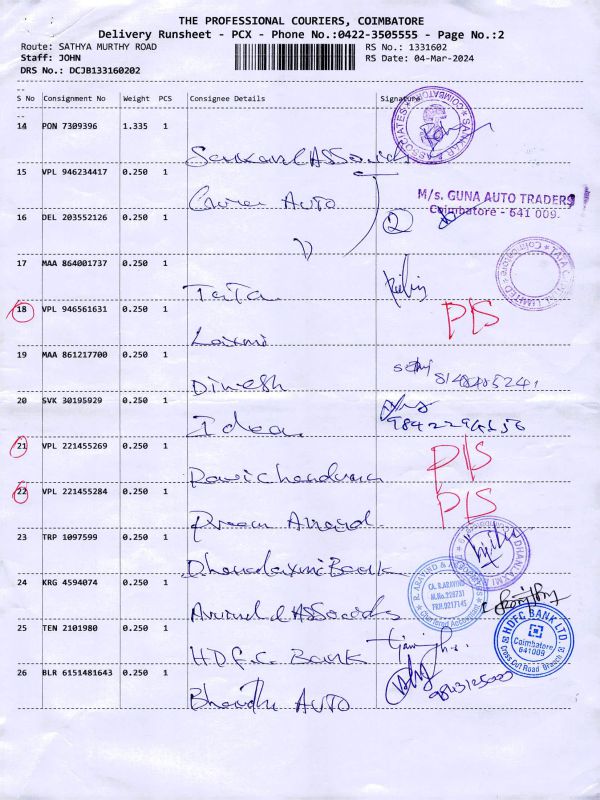 THE PROFESSIONAL COURIERS, COIMBATORE
Delivery Runsheet - PCX - Phone No.:0422-3505555 - Page No.:2
Route: SATHYA MURTHY ROAD RS No.: 1331602
Staff: JOHN RS Date: 04-Mar-2024
DRS No.: DCJB133160202
S No Consignment No Weight PCS Consignee Details Signature
14 PON 7309396 1.335 1
15 VPL 946234417 0.250 1
M/s. GUNA AUTO TRADERS
Coimbatore - 641 009.
AUTO
16 DEL 203552126 0.250 1
17 MAA 864001737 0.250 1
TATA
18 VPL 946561631 0.250 1 P/S
Laxmi
19 MAA 861217700 0.250 1
Dinesh
20 SVK 30195929 0.250 1
Idea
21 VPL 221455269 0.250 1 P/S
Ravichandran
22 VPL 221455284 0.250 1 P/S
Anand
23 TRP 1097599 0.250 1
Dhanalaxmi Bank
24 KRG 4594074 0.250 1
R. ARAVIND &
CA. R.ARAVIND
M.No.228731
FRN.021714S
Chartered Accountants
Aravind & Associates
25 TEN 2101980 0.250 1
HDFC BANK LTD.
Coimbatore
641009
Cross Cut Road Branch
HDFC Bank
26 BLR 6151481643 0.250 1
AUTO